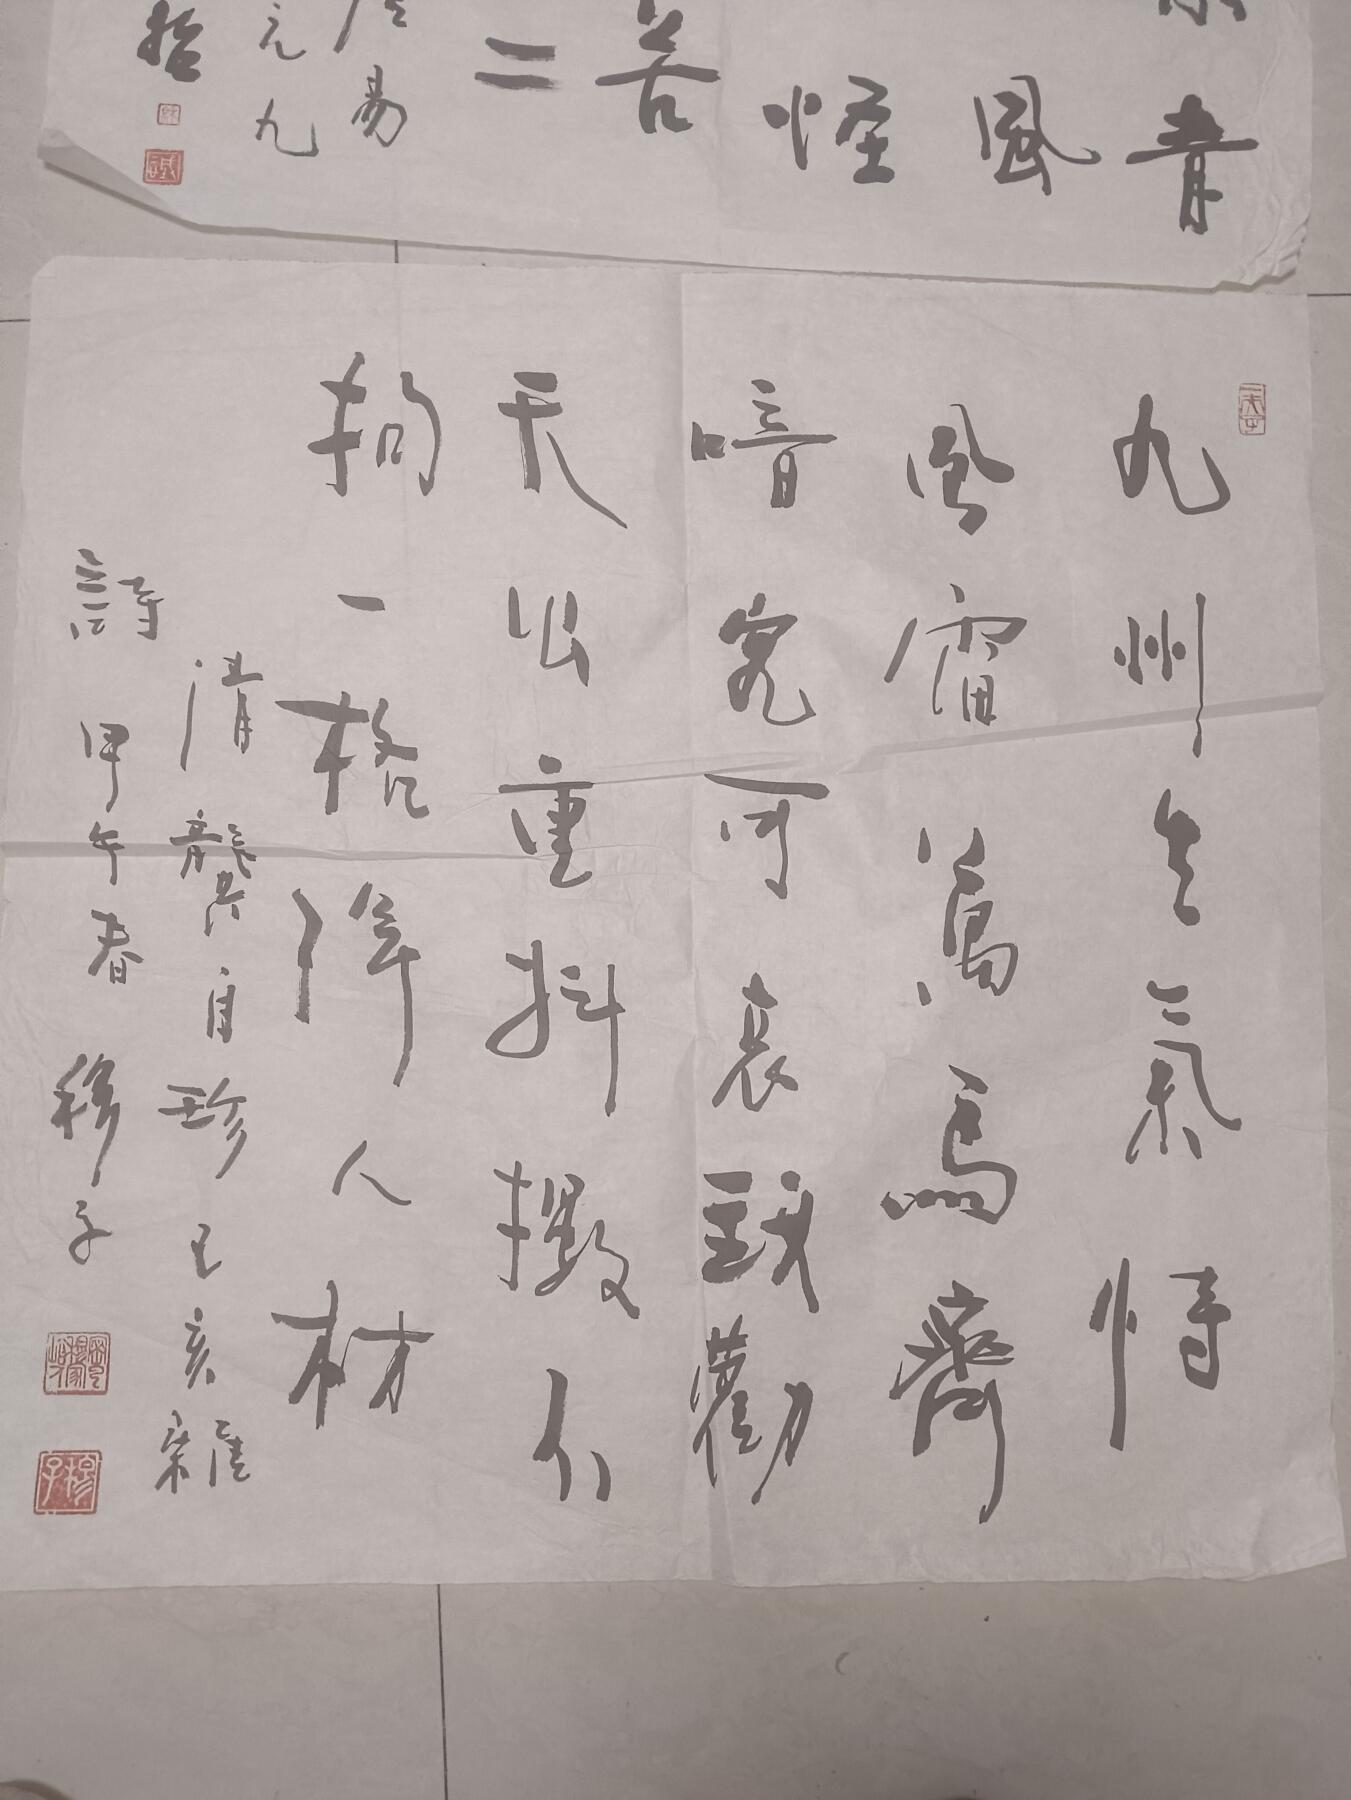 青
風
怪
苦
二
易
元九
九州生氣恃
風雷萬馬齊
喑究可哀我勸
天公重抖擻不
拘一格降人材
清龔自珍己亥雜
詩 甲午春 穆子